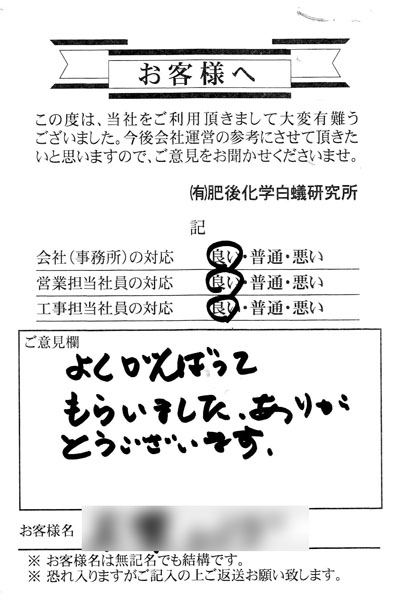 お客様へ
この度は、当社をご利用頂きまして大変有難う
ございました。今後会社運営の参考にさせて頂きた
いと思いますので、ご意見をお聞かせくださいませ。
㈲肥後化学白蟻研究所
記
会社（事務所）の対応 良い・普通・悪い
営業担当社員の対応 良い・普通・悪い
工事担当社員の対応 良い・普通・悪い
ご意見欄
よくがんばって
もらいました、ありが
とうございます。
お客様名
※ お客様名は無記名でも結構です。
※ 恐れ入りますがご記入の上ご返送お願い致します。